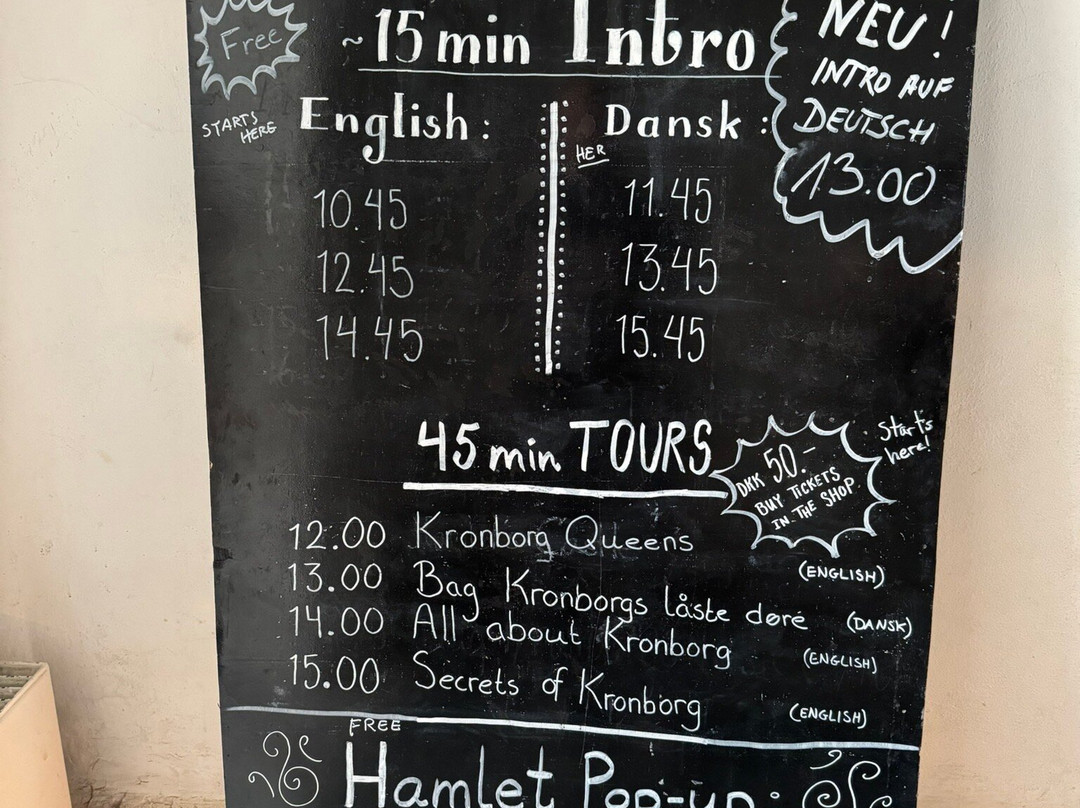 Free
~15 min Intro
NEU!
INTRO AUF
DEUTSCH
13.00
STARTS
HERE
English:
Dansk:
HER
10.45
12.45
14.45
11.45
13.45
15.45
45 min TOURS
DKK 50.-
BUY TICKETS
IN THE SHOP
Start's
here!
12.00 Kronborg Queens (ENGLISH)
13.00 Bag Kronborgs låste døre (DANSK)
14.00 All about Kronborg (ENGLISH)
15.00 Secrets of Kronborg (ENGLISH)
FREE
Hamlet Pop-up: